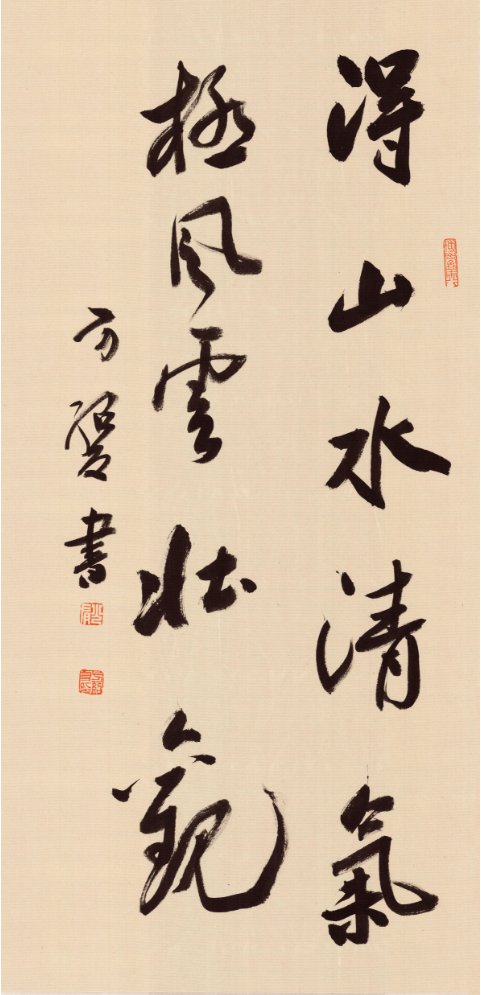 得山水清氣
極風雲壯觀
方 書